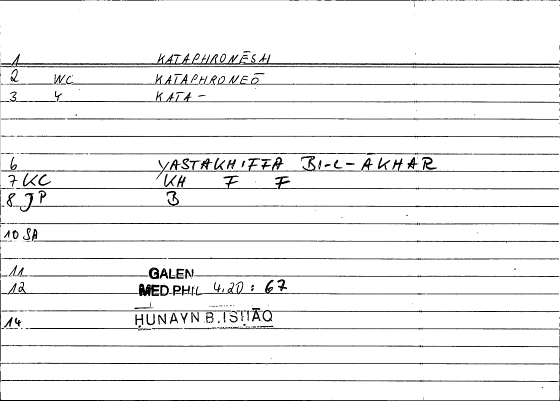 1 KATAPHRONĒSAI
2 WC KATAPHRONEŌ
3 4 KATA -
6 YASTAKHIFFA BI-L-ĀKHAR
7 KC KH F F
8 JP B
10 SA
11 GALEN
12 MED.PHIL 4,20 : 67
14 HUNAYN B. ISḤĀQ